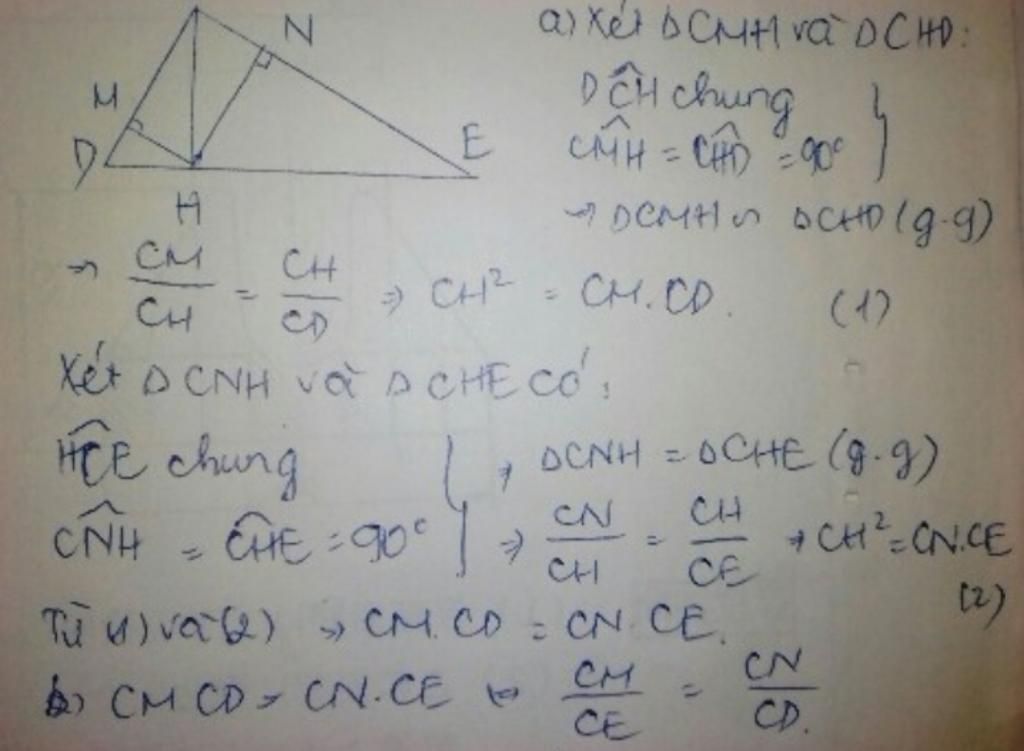 a) Xét ΔCMH và ΔCHD:
N
M
DĈH chung
D
E
CM̂H = CĤD = 90°
H
→ ΔCMH ∽ ΔCHD (g.g)
⇒ CM/CH = CH/CD ⇒ CH² = CM.CD. (1)
Xét ΔCNH và ΔCHE có:
HĈE chung
⇒ ΔCNH = ΔCHE (g.g)
CN̂H = CĤE = 90°
⇒ CN/CH = CH/CE ⇒ CH² = CN.CE
(2)
Từ (1) và (2) ⇒ CM.CD = CN.CE.
b) CM CD = CN.CE ⇔ CM/CE = CN/CD.